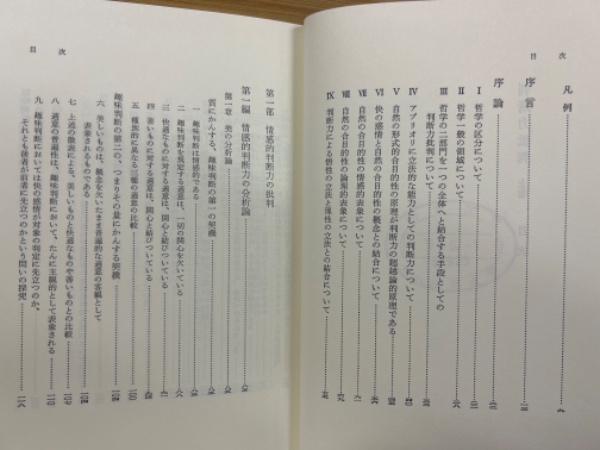 目次
凡例
序言
序論
Ⅰ 哲学の区分について
Ⅱ 哲学一般の領域について
Ⅲ 哲学の二部門を一つの全体へと結合する手段としての
判断力批判について
Ⅳ アプリオリに立法的な能力としての判断力について
Ⅴ 自然の形式的合目的性の原理が判断力の超越論的原理である
Ⅵ 快の感情と自然の合目的性の概念との結合について
Ⅶ 自然の合目的性の情感的表象について
Ⅷ 自然の合目的性の論理的表象について
Ⅸ 判断力による悟性の立法と理性の立法との結合について
目次
第一部 情感的判断力の批判
第一編 情感的判断力の分析論
第一章 美の分析論
質にかんする、趣味判断の第一の契機
一 趣味判断は情感的である
二 趣味判断を規定する適意は、一切の関心を欠いている
三 快適なものに対する適意は、関心と結びついている
四 善いものに対する適意は、関心と結びついている
五 種族的に異なる三種の適意の比較
趣味判断の第二の、つまりその量にかんする契機
六 美しいものは、概念を欠いたまま普遍的な適意の客観として
表象されるものである
七 上述の徴表による、美しいものと快適なものや善いものとの比較
八 適意の普遍性は、趣味判断において、たんに主観的として表象される
九 趣味判断においては快の感情が対象の判定に先立つのか、
それとも後者が前者に先立つのかという問いの探究